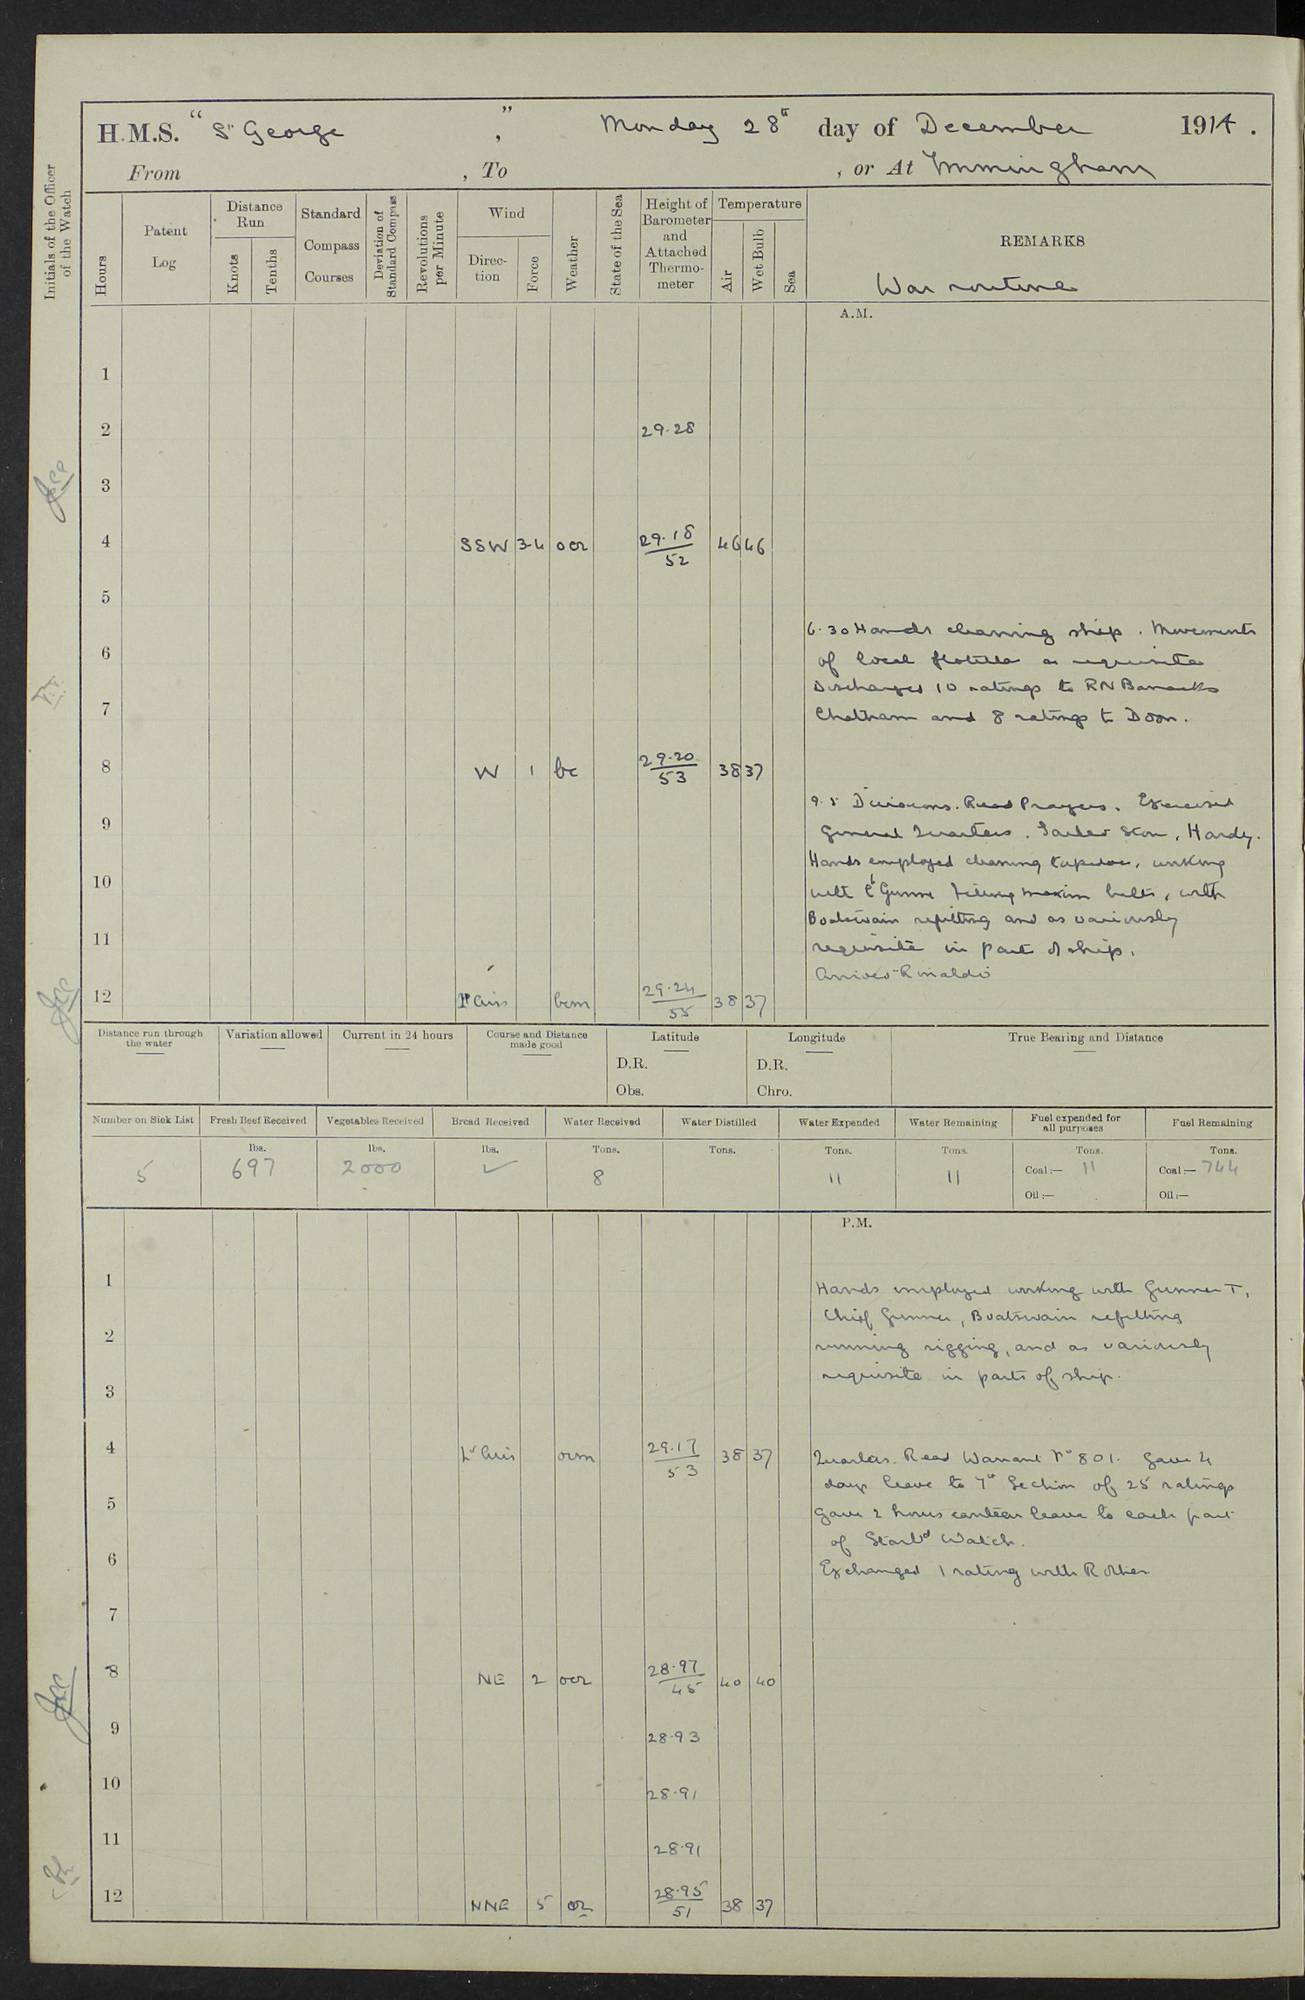 H.M.S. "St George", Monday 28th day of December 1914.
From , To , or At Immingham
Initials of the Officer of the Watch
Hours
Patent Log
Distance Run
Knots
Tenths
Standard Compass Courses
Deviation of Standard Compass
Revolutions per Minute
Wind
Direction
Force
Weather
State of the Sea
Height of Barometer and Attached Thermometer
Temperature
Air
Wet Bulb
Sea
REMARKS
War routine
A.M.
1
2 29.28
3
4 SSW 3-4 ocr 29.18 52 46 46
5
6.30 Hands cleaning ship. Movements
6
of local flotilla as requisite
Discharged 10 ratings to RN Barracks
7
Chatham and 8 ratings to Doon.
8 W 1 bc 29.20 53 38 37
9.5 Divisions. Read Prayers. Exercised
9
General Quarters. Hardy.
Hands employed cleaning, working
10
with Ch Gunner filling maxim belts, with
Boatswain refitting and as variously
11
requisite in part of ship.
Arrived Rinaldo
12 Airs bcm 29.24 55 38 37
Distance run through the water
Variation allowed
Current in 24 hours
Course and Distance made good
Latitude
D.R.
Obs.
Longitude
D.R.
Chro.
True Bearing and Distance
Number on Sick List
Fresh Beef Received
Vegetables Received
Bread Received
Water Received
Water Distilled
Water Expended
Water Remaining
Fuel expended for all purposes
Fuel Remaining
lbs. lbs. lbs. Tons. Tons. Tons. Tons. Tons. Tons.
5 697 2000 ✓ 8 11 11 Coal:— 11 Coal:— 744
Oil:— Oil:—
P.M.
1
Hands employed working with Gunner T,
Chief Gunner, Boatswain refitting
2
running rigging, and as variously
requisite in parts of ship.
3
4 Lt Airs ocm 29.17 53 38 37
Quarters. Read Warrant No 801. Gave 4
days leave to 7th Section of 25 ratings
5
Gave 2 hours canteen leave to each part
of Starbd Watch.
6
Exchanged 1 rating with Rother
7
8 NE 2 ocr 28.97 45 40 40
9 28.93
10 28.91
11 28.91
12 NNE 5 or 28.95 51 38 37